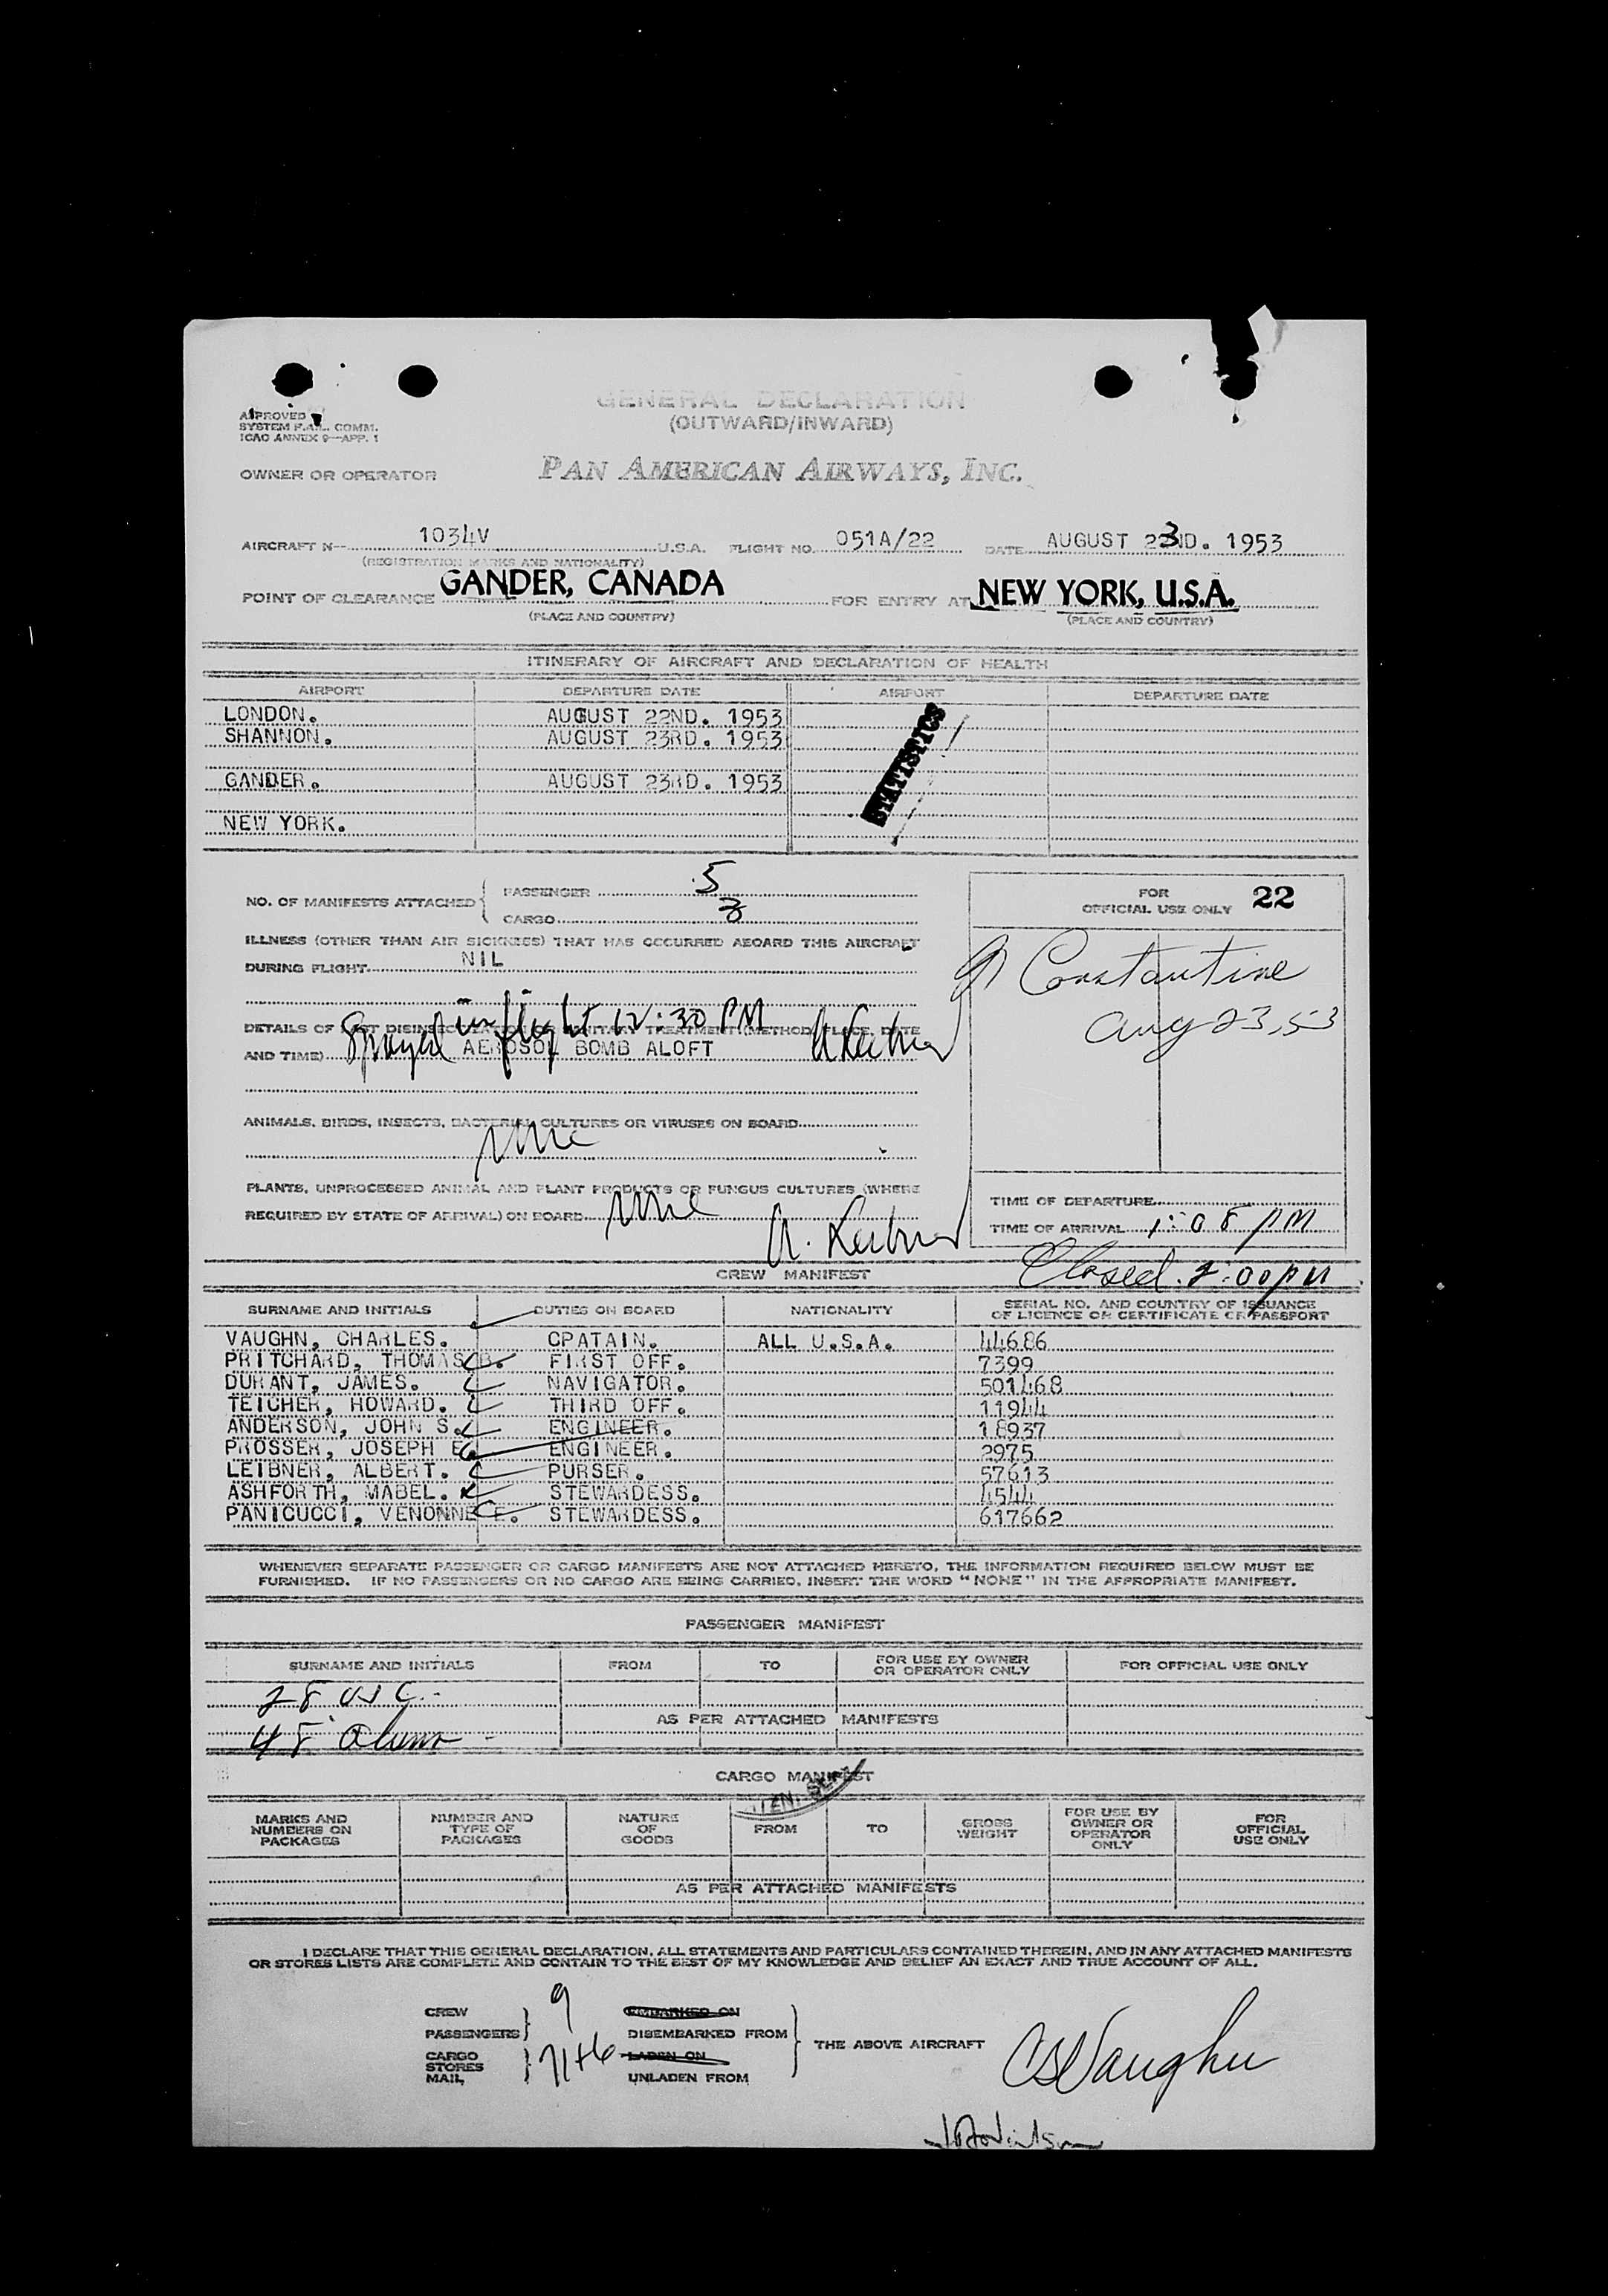 GENERAL DECLARATION
(OUTWARD/INWARD)
APPROVED
SYSTEM F.A.L. COMM.
ICAO ANNEX 9—APP. 1
OWNER OR OPERATOR PAN AMERICAN AIRWAYS, INC.
AIRCRAFT N-- 1034V U.S.A. FLIGHT NO. 051A/22 DATE AUGUST 23ND. 1953
(REGISTRATION MARKS AND NATIONALITY)
POINT OF CLEARANCE GANDER, CANADA FOR ENTRY AT NEW YORK, U.S.A.
(PLACE AND COUNTRY) (PLACE AND COUNTRY)
ITINERARY OF AIRCRAFT AND DECLARATION OF HEALTH
AIRPORT DEPARTURE DATE AIRPORT DEPARTURE DATE
LONDON. AUGUST 22ND. 1953
SHANNON. AUGUST 23RD. 1953
GANDER. AUGUST 23RD. 1953
NEW YORK.
STATISTICS
NO. OF MANIFESTS ATTACHED { PASSENGER 5
CARGO 3
FOR OFFICIAL USE ONLY 22
ILLNESS (OTHER THAN AIR SICKNESS) THAT HAS OCCURRED ABOARD THIS AIRCRAFT
DURING FLIGHT NIL
Constantine
Aug 23, 53
inflight 12:30 PM
DETAILS OF LAST DISINSECTIZATION OR SANITARY TREATMENT (METHOD, PLACE, DATE
AND TIME) Sprayed AEROSOL BOMB ALOFT A Leibner
ANIMALS, BIRDS, INSECTS, BACTERIAL CULTURES OR VIRUSES ON BOARD
None
PLANTS, UNPROCESSED ANIMAL AND PLANT PRODUCTS OR FUNGUS CULTURES (WHERE
REQUIRED BY STATE OF ARRIVAL) ON BOARD None
A. Leibner
TIME OF DEPARTURE
TIME OF ARRIVAL 1:08 PM
Closed. 2:00 PM
CREW MANIFEST
SURNAME AND INITIALS DUTIES ON BOARD NATIONALITY SERIAL NO. AND COUNTRY OF ISSUANCE
OF LICENCE OR CERTIFICATE OR PASSPORT
VAUGHN, CHARLES. CPATAIN. ALL U.S.A. 44686
PRITCHARD, THOMAS B. FIRST OFF. 7399
DURANT, JAMES. NAVIGATOR. 501468
TEICHER, HOWARD. THIRD OFF. 11944
ANDERSON, JOHN S. ENGINEER. 18937
PROSSER, JOSEPH E. ENGINEER. 2975
LEIBNER, ALBERT. PURSER. 57613
ASHFORTH, MABEL. STEWARDESS. 4544
PANICUCCI, VENONNE E. STEWARDESS. 617662
WHENEVER SEPARATE PASSENGER OR CARGO MANIFESTS ARE NOT ATTACHED HERETO, THE INFORMATION REQUIRED BELOW MUST BE
FURNISHED. IF NO PASSENGERS OR NO CARGO ARE BEING CARRIED, INSERT THE WORD "NONE" IN THE APPROPRIATE MANIFEST.
PASSENGER MANIFEST
SURNAME AND INITIALS FROM TO FOR USE BY OWNER
OR OPERATOR ONLY FOR OFFICIAL USE ONLY
28 USC.
AS PER ATTACHED MANIFESTS
48 Aliens
CARGO MANIFEST
MARKS AND
NUMBERS ON
PACKAGES
NUMBER AND
TYPE OF
PACKAGES
NATURE
OF
GOODS
FROM
TO
GROSS
WEIGHT
FOR USE BY
OWNER OR
OPERATOR
ONLY
FOR
OFFICIAL
USE ONLY
AS PER ATTACHED MANIFESTS
I DECLARE THAT THIS GENERAL DECLARATION, ALL STATEMENTS AND PARTICULARS CONTAINED THEREIN, AND IN ANY ATTACHED MANIFESTS
OR STORES LISTS ARE COMPLETE AND CONTAIN TO THE BEST OF MY KNOWLEDGE AND BELIEF AN EXACT AND TRUE ACCOUNT OF ALL.
CREW 9 EMBARKED ON
PASSENGERS DISEMBARKED FROM
THE ABOVE AIRCRAFT CSVaughn
CARGO 71+6 LADEN ON
STORES
MAIL UNLADEN FROM